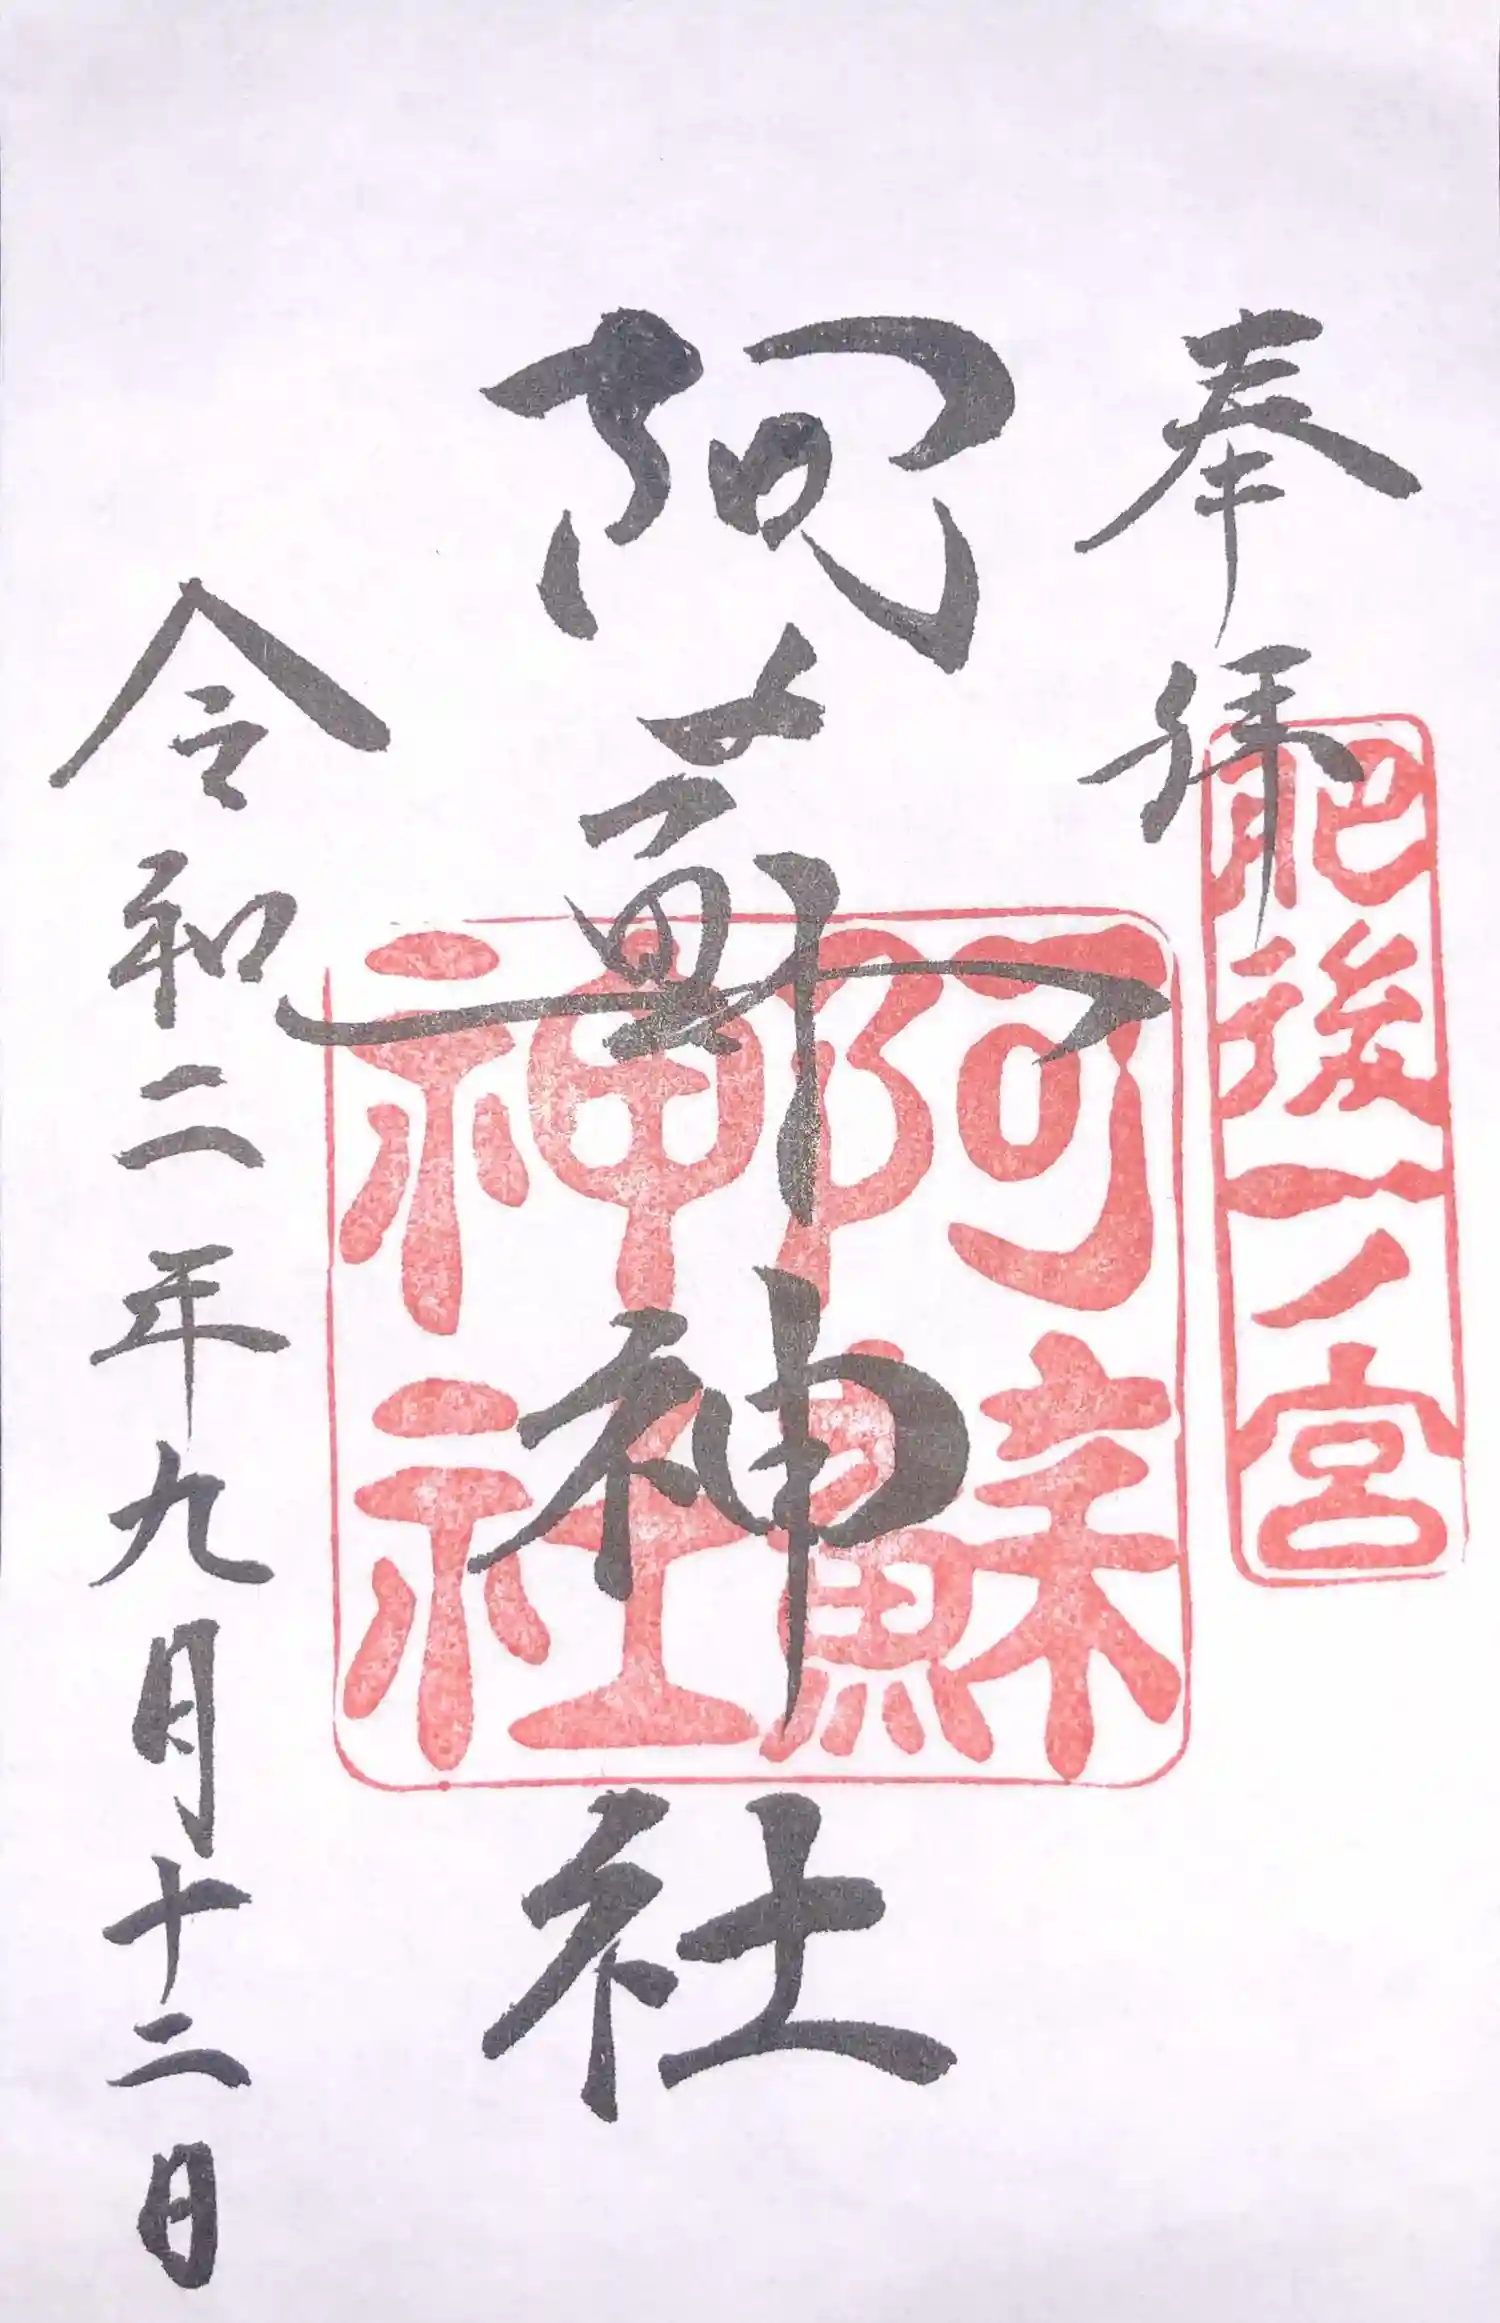 奉拝
肥後一ノ宮
阿蘇神社
阿蘇
神社
令和二年九月十二日